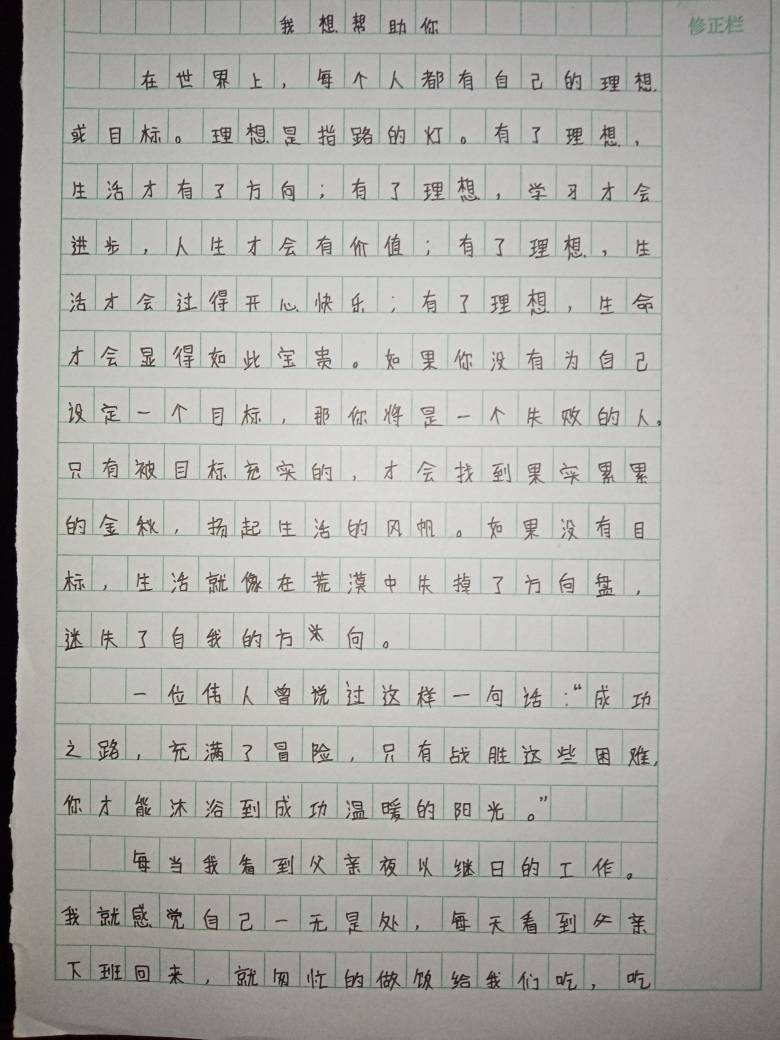 我想帮助你
修正栏
在世界上，每个人都有自己的理想
或目标。理想是指路的灯。有了理想，
生活才有了方向；有了理想，学习才会
进步，人生才会有价值；有了理想，生
活才会过得开心快乐；有了理想，生命
才会显得如此宝贵。如果你没有为自己
设定一个目标，那你将是一个失败的人。
只有被目标充实的，才会找到果实累累
的金秋，扬起生活的风帆。如果没有目
标，生活就像在荒漠中失掉了方向盘，
迷失了自我的方向。
一位伟人曾说过这样一句话：“成功
之路，充满了冒险，只有战胜这些困难，
你才能沐浴到成功温暖的阳光。”
每当我看到父亲夜以继日的工作。
我就感觉自己一无是处，每天看到父亲
下班回来，就匆忙的做饭给我们吃，吃